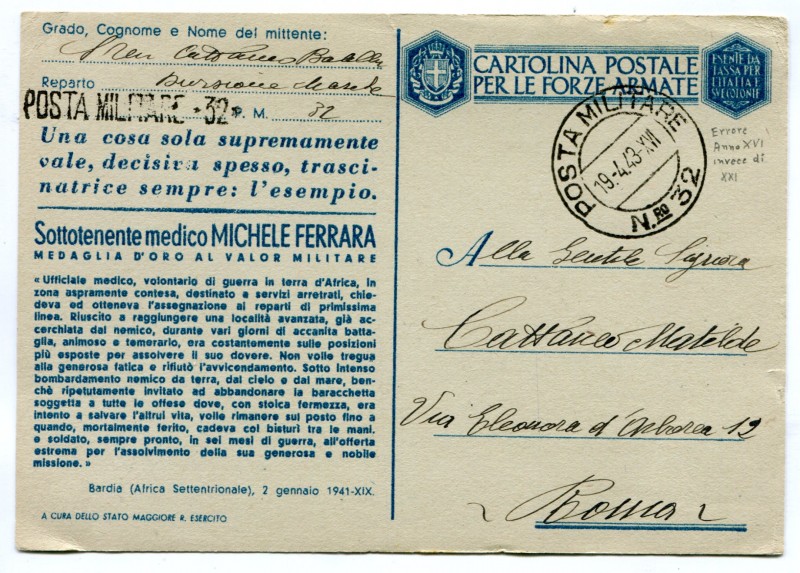 Grado, Cognome e Nome del mittente:
Cattaneo
Reparto Divisione
POSTA MILITARE - 32 P. M. 32
Una cosa sola supremamente
vale, decisiva spesso, trasci-
natrice sempre: l'esempio.
Sottotenente medico MICHELE FERRARA
MEDAGLIA D'ORO AL VALOR MILITARE
«Ufficiale medico, volontario di guerra in terra d'Africa, in
zona aspramente contesa, destinato a servizi arretrati, chie-
deva ed otteneva l'assegnazione ai reparti di primissima
linea. Riuscito a raggiungere una località avanzata, già ac-
cerchiata dal nemico, durante vari giorni di accanita batta-
glia, animoso e temerario, era costantemente sulle posizioni
più esposte per assolvere il suo dovere. Non volle tregua
alla generosa fatica e rifiutò l'avvicendamento. Sotto intenso
bombardamento nemico da terra, dal cielo e dal mare, ben-
chè ripetutamente invitato ad abbandonare la baracchetta
soggetta a tutte le offese dove, con stoica fermezza, era
intento a salvare l'altrui vita, volle rimanere sul posto fino a
quando, mortalmente ferito, cadeva col bisturi tra le mani.
e soldato, sempre pronto, in sei mesi di guerra, all'offerta
estrema per l'assolvimento della sua generosa e nobile
missione.»
Bardia (Africa Settentrionale), 2 gennaio 1941-XIX.
A CURA DELLO STATO MAGGIORE R. ESERCITO
CARTOLINA POSTALE
PER LE FORZE ARMATE
ESENTE DA
TASSA PER
L'ITALIA E
SVE COLONIE
POSTA MILITARE
19.4.43-XVI
N.RO 32
Errore
Anno XVI
invece di
XXI
Alla Gentile Signora
Cattaneo Matilde
Via Eleonora d'Arborea 12
Roma